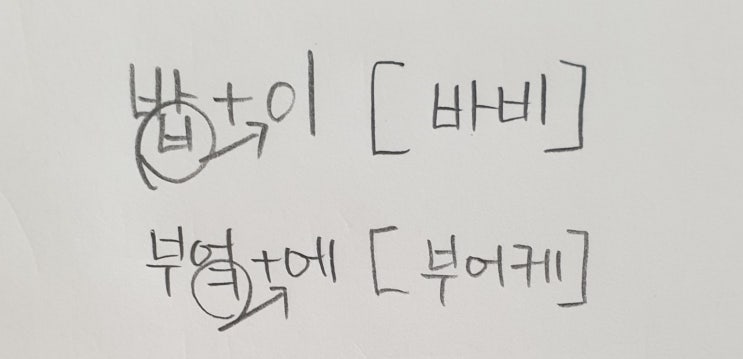 밥+이 [바비]
부엌+에 [부어케]